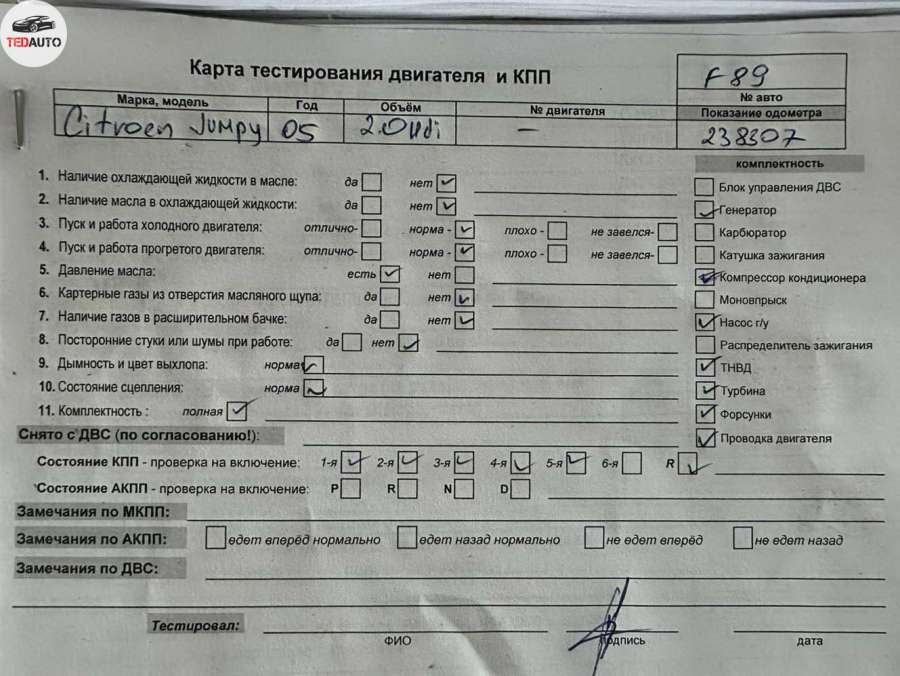 TEDAUTO
Карта тестирования двигателя и КПП
F 89
№ авто
Марка, модель Год Объём № двигателя Показание одометра
Citroen Jumpy 05 2.0 Hdi — 238307
комплектность
1. Наличие охлаждающей жидкости в масле: да нет
2. Наличие масла в охлаждающей жидкости: да нет
3. Пуск и работа холодного двигателя: отлично- норма - плохо - не завелся-
4. Пуск и работа прогретого двигателя: отлично- норма - плохо - не завелся-
5. Давление масла: есть нет
6. Картерные газы из отверстия масляного щупа: да нет
7. Наличие газов в расширительном бачке: да нет
8. Посторонние стуки или шумы при работе: да нет
9. Дымность и цвет выхлопа: норма
10. Состояние сцепления: норма
11. Комплектность : полная
Блок управления ДВС
Генератор
Карбюратор
Катушка зажигания
Компрессор кондиционера
Моновпрыск
Насос г/у
Распределитель зажигания
ТНВД
Турбина
Форсунки
Проводка двигателя
Снято с ДВС (по согласованию!):
Состояние КПП - проверка на включение: 1-я 2-я 3-я 4-я 5-я 6-я R
Состояние АКПП - проверка на включение: P R N D
Замечания по МКПП:
Замечания по АКПП: едет вперёд нормально едет назад нормально не едет вперёд не едет назад
Замечания по ДВС:
Тестировал:
ФИО подпись дата